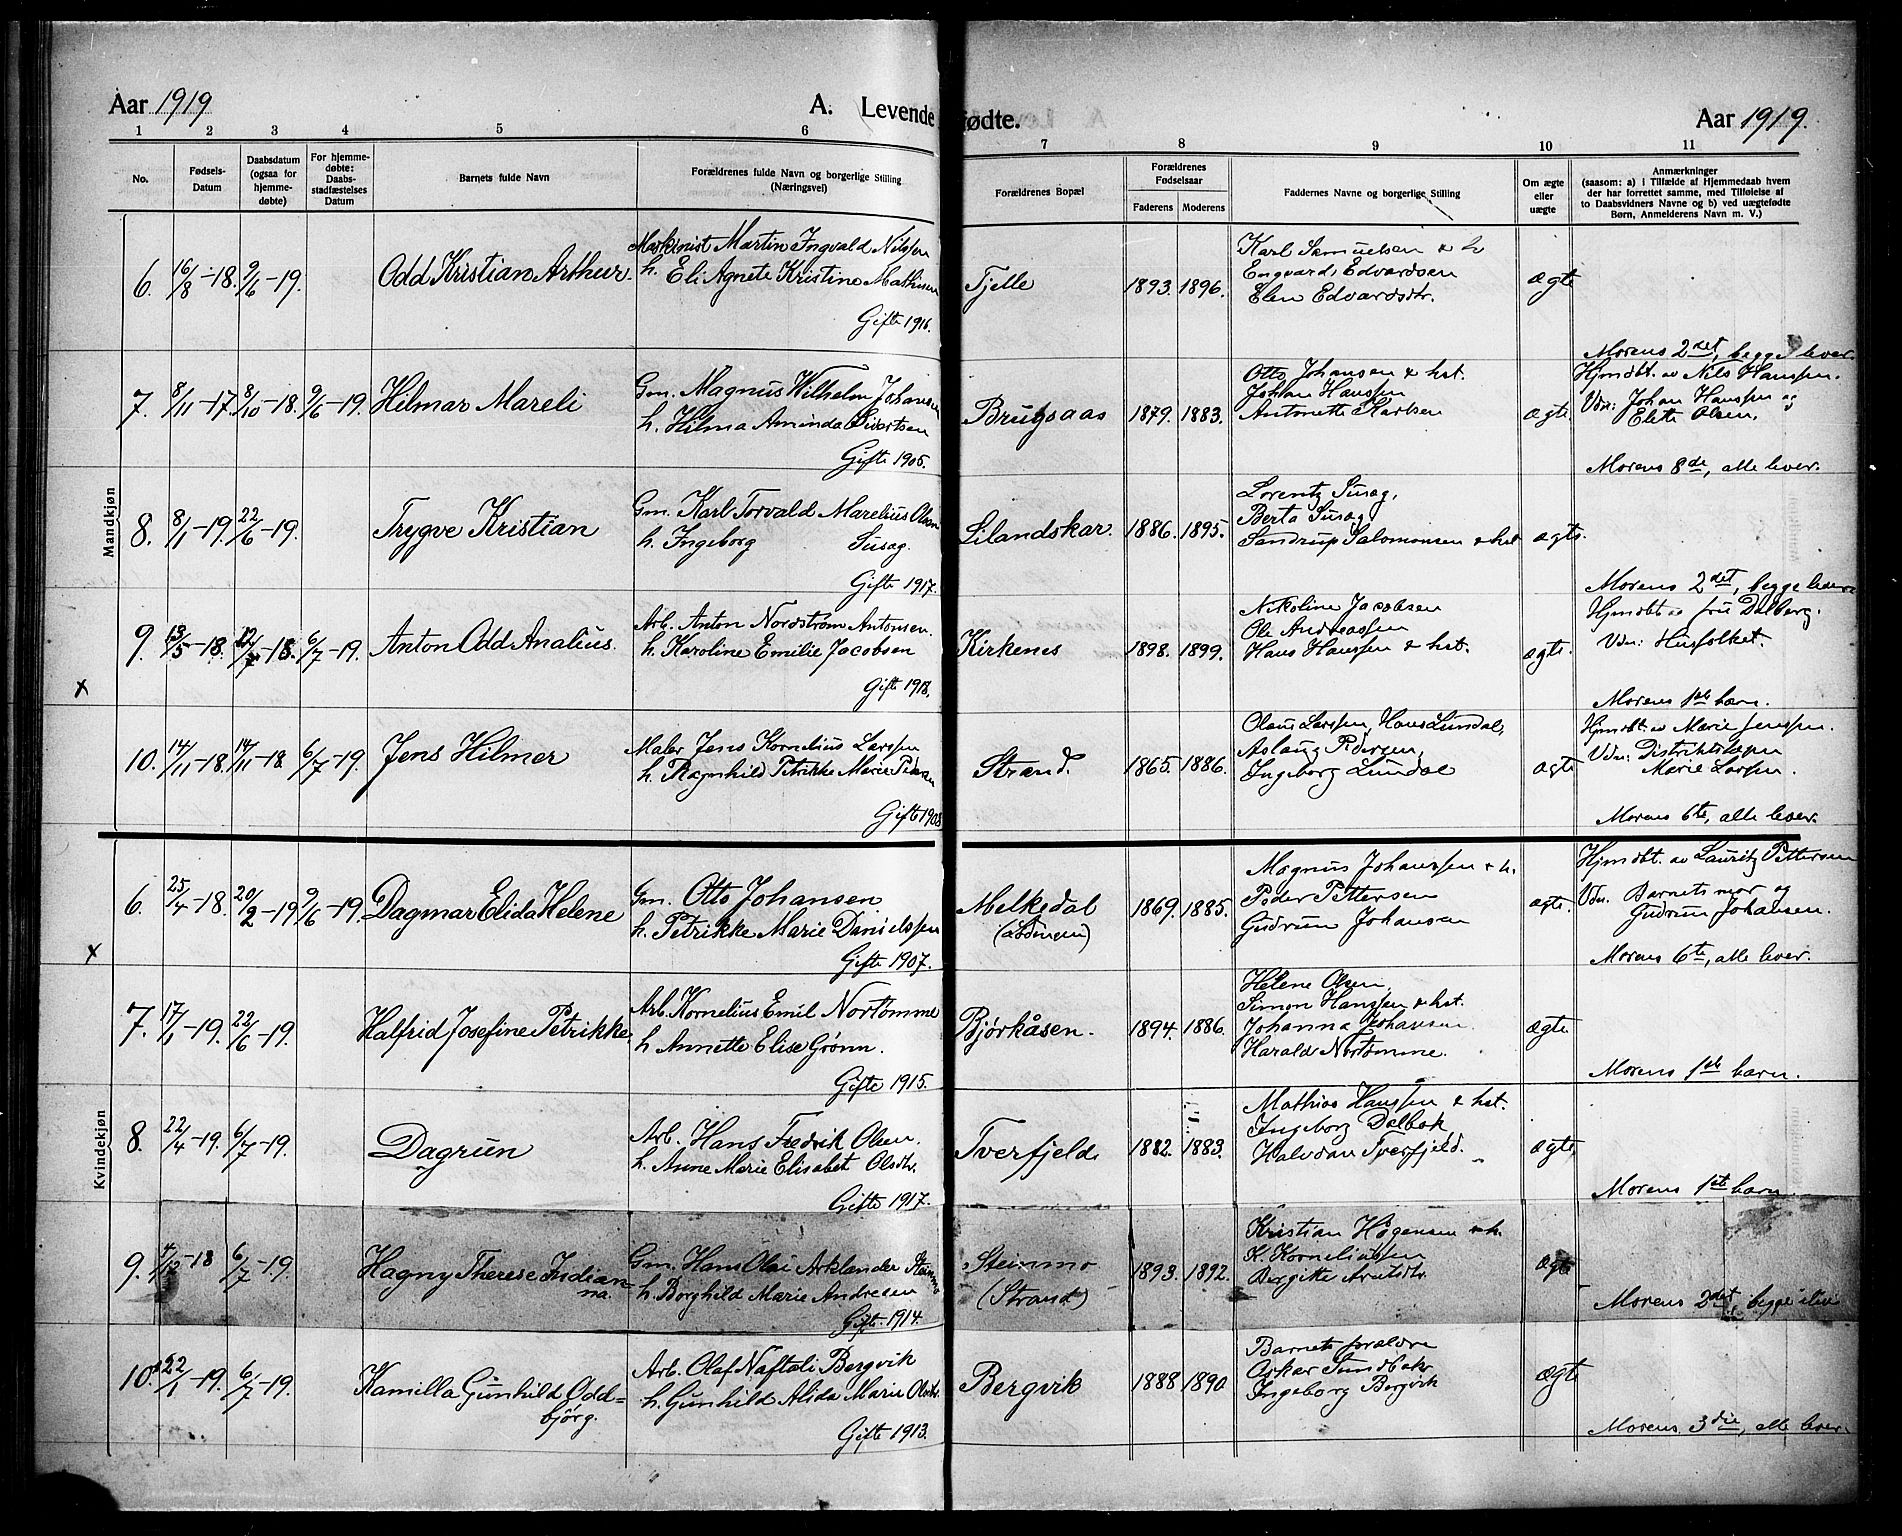 Aar 1919
A. Levende fødte.
Aar 1919.
1 2 3 4 5 6 7 8 9 10 11
No.
Fødsels-
Datum
Daabsdatum
(ogsaa for
hjemme-
døbte)
For hjemme-
døbte:
Daabs-
stadfæstelses
Datum
Barnets fulde Navn
Forældrenes fulde Navn og borgerlige Stilling
(Næringsvei)
Forældrenes Bopæl
Forældrenes
Fødselsaar
Faderens Moderens
Faddernes Navne og borgerlige Stilling
Om ægte
eller
uægte
Anmærkninger
(saasom: a) i Tilfælde af Hjemmedaab hvem
der har forrettet samme, med Tilføielse af
to Daabsvidners Navne og b) ved uægtefødte
Børn, Anmelderens Navn m. V.)
Mandkjøn
6. 16/8-18. 9/6-19. Odd Kristian Arthur.
Maskinist Martin Ingvald Nilssen
h. Eli Agnete Kristine Mathisen
Gifte 1916.
Tjelle 1893. 1896.
Karl Samuelsen & h
Engvard Edvardsen
Elen Edvardsdtr.
ægte
Morens 2det, begge lever.
7. 8/11-17. 8/10-18. 9/6-19. Hilmar Mareli
Gm. Magnus Wilhelm Johansen
h. Hilma Aminda Sivertsen
Gifte 1905.
1879. 1883.
Otto Johansen & hst.
Johan Hanssen
Antonette Karlsen
ægte.
Hjmdbt. av Nils Hanssen.
Vdn: Johan Hanssen og
Elette Olsen.
Morens 8de, alle lever.
8. 8/1-19. 22/6-19. Trygve Kristian
Gm. Karl Torvald Marelius Olsen
h. Ingeborg Susag.
Gifte 1917.
Lilandskar. 1886. 1895.
Lorentz Susag,
Berta Susag
Sandrup Salomonsen & hst
ægte.
Morens 2det, begge lever
9. 13/5-18. 12/7-18. 6/7-19. Anton Odd Analius.
Arb. Anton Nordstrøm Antonsen.
h. Karoline Emilie Jacobsen
Gifte 1918.
Kirkenes 1898. 1899.
Nikoline Jacobsen
Ole Andreassen
Hans Hanssen & hst.
ægte.
Hjmdbt av fru Dalberg.
Vdn: Husfolket.
Morens 1ste barn.
x
10. 14/11-18. 14/11-18 6/7-19. Jens Hilmer
Maler Jens Kornelius Larssen
h. Ragnhild Petrikke Marie Pedersen
Gifte 1908
Strand. 1865. 1886.
Olaus Larssen, Hans Lundal,
Aslaug Pedersen,
Ingeborg Lundal
ægte
Hjmdbt. av Marie Jenssen.
Marie Larsen.
Morens 6te, alle lever.
Kvindekjøn
6. 25/4-18. 20/2-19 9/6-19. Dagmar Elida Helene
Gm. Otto Johansen
h. Petrikke Marie Danielssen
Gifte 1907.
Melkedal
(Lødingen)
1869. 1885.
Magnus Johanssen & h.
Peder Pettersen
Gudrun Johansen
ægte.
Hjmdbt. av Lauritz Pettersen
Vdn. Barnets mor og
Gudrun Johansen.
Morens 6te, alle lever.
x
7. 17/1-19. 22/6-19. Halfrid Josefine Petrikke
Arb. Kornelius Emil Nortømme
h Annette Elise Grønn.
Gifte 1915.
Bjørkåsen. 1894. 1886.
Helene Olsen,
Simon Hanssen & hst.
Johanna Johansen.
Harald Nortømme.
ægte
Morens 1ste barn.
8 22/4-19. 6/7-19. Dagrun
Arb. Hans Fredrik Olsen.
h. Anne Marie Elisabet Olsdtr.
Gifte 1917.
Tverfjeld 1882. 1883.
Mathias Hanssen & hst.
Ingeborg Dalbak
Halvdan Tverfjeld.
ægte,
Morens 1ste barn.
9. 4/12-18 6/7-19. Hagny Therese Indian-
na.
Gm. Hans Olai Arklander Steinmo
h. Borghild Marie Andresen
Gifte 1914.
Steinmo
(Strand)
1893. 1892.
Kristian Hågensen & h.
K. Korneliussen
Bergitte Arntsdtr.
ægte
Morens 2det, begge
10. 22/1-19. 6/7-19. Kamilla Gunhild Odd=
björg.
Arb. Olaf Naftali Bergvik
h. Gunhild Alida Marie Olsdtr.
Gifte 1913.
Bergvik 1888 1890
Barnets forældre
Oskar Sundbakr
Ingeborg Bergvik
ægte
Morens 3die, alle lever.